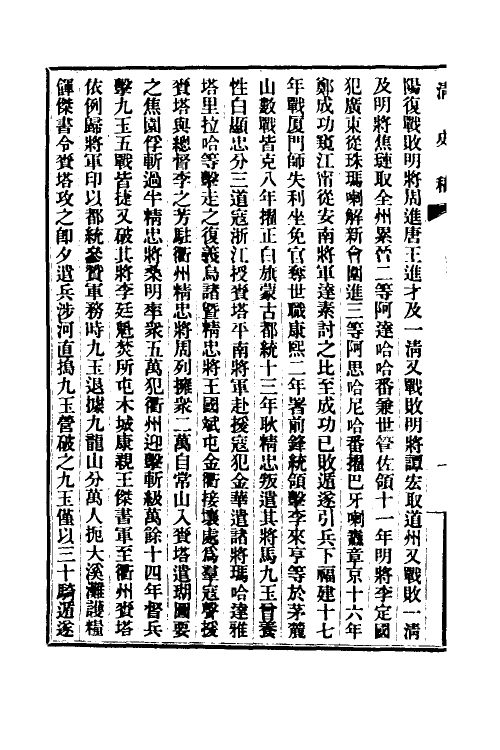 清史稿
陽復戰敗明將周進唐王進才及一清又戰敗明將譚宏取道州又戰敗一清
及明將焦璉取全州累晉二等阿達哈哈番兼世管佐領十一年明將李定國
犯廣東從珠瑪喇解新會圍進三等阿思哈尼哈番擢巴牙喇纛章京十六年
鄭成功窺江甯從安南將軍達素討之比至成功已敗遁遂引兵下福建十七
年戰厦門師失利坐免官奪世職康熙二年署前鋒統領擊李來亨等於茅麓
山數戰皆克八年擢正白旗蒙古都統十三年耿精忠叛遣其將馬九玉曾養
性白顯忠分三道寇浙江授賚塔平南將軍赴援寇犯金華遣諸將瑪哈達雅
塔里拉哈等擊走之復義烏諸暨精忠將王國斌屯金衢接壤處爲羣寇聲援
賚塔與總督李之芳駐衢州精忠將周列擁衆二萬自常山入賚塔遣瑚圖要
之焦園俘斬過半精忠將桑明率衆五萬犯衢州迎擊斬級萬餘十四年督兵
擊九玉五戰皆捷又破其將李廷魁焚所屯木城康親王傑書軍至衢州賚塔
依例歸將軍印以都統參贊軍務時九玉退據九龍山分萬人扼大溪灘護糧
餫傑書令賚塔攻之卽夕遣兵涉河直搗九玉營破之九玉僅以三十騎遁遂